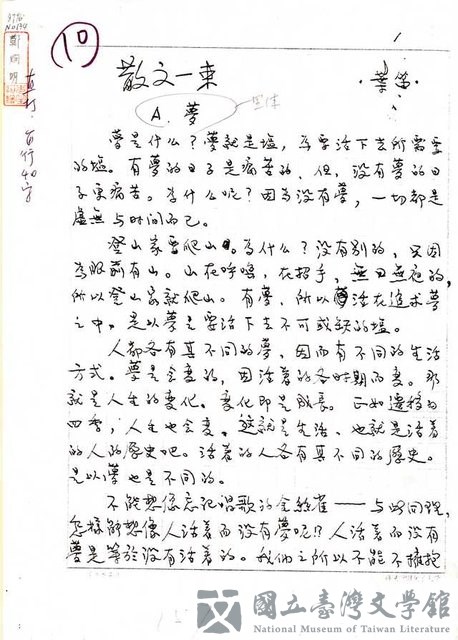 10
1
散文一束
葉笛
A. 夢
直打：每行40字
鄭烱明
夢是什么？夢就是塩，爲要活下去所需要
的塩。有夢的日子是痛苦的，但，没有夢的日
子更痛苦。為什么呢？因為没有夢，一切都是
虚無与时间而已。
登山家要爬山。為什么？没有別的，只因
為眼前有山。山在呼鳴，在招手，無日無夜的，
所以登山家就爬山。有夢，所以活在追求夢
之中，是以夢是要活下去不可或缺的塩。
人都各有其不同的夢，因而有不同的生活
方式。夢是会変的，因活着的各时期而変。那
就是人生的変化。変化即是成長。正如遷移的
四季，人生也会変，這就是生活，也就是活着
的人的歷史吧。活着的人各有其不同的歷史。
是以夢也是不同的。
不能想像忘记唱歌的金絲雀——与此同理，
怎樣能想像人活着而没有夢呢!?人活着而没有
夢是等於没有活着的。我們之所以不能不擁抱
國立臺灣文學館
National Museum of Taiwan Literature